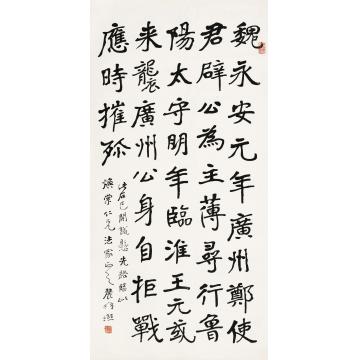 魏永安元年廣州鄭使
君辟公為主薄尋行魯
陽太守明年臨淮王元彧
来襲廣州公身自拒戰
應時摧殄
仁兄法家正之